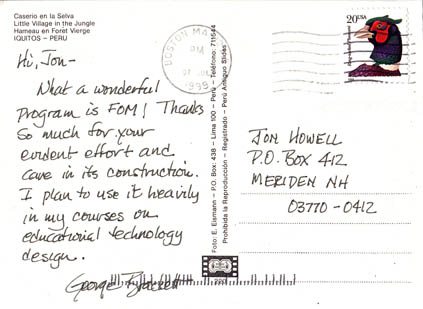 Caserio en la Selva
Little Village in the Jungle
Hameau en Forêt Vierge
IQUITOS - PERU
Hi, Jon-
What a wonderful
Program is FOM! Thanks
so much for your
evident effort and
care in its construction.
I plan to use it heavily
in my courses on
educational technology
design.
George Brackett
Foto: E. Eismann - P.O. Box: 438 - Lima 100 - Perú - Teléfono: 711544
Prohibida la Reproducción - Registrado - Perú Antiguo Slides
BOSTON MA
PM
1999
20 USA
JON HOWELL
P.O. BOX 412
MERIDEN NH
03770-0412